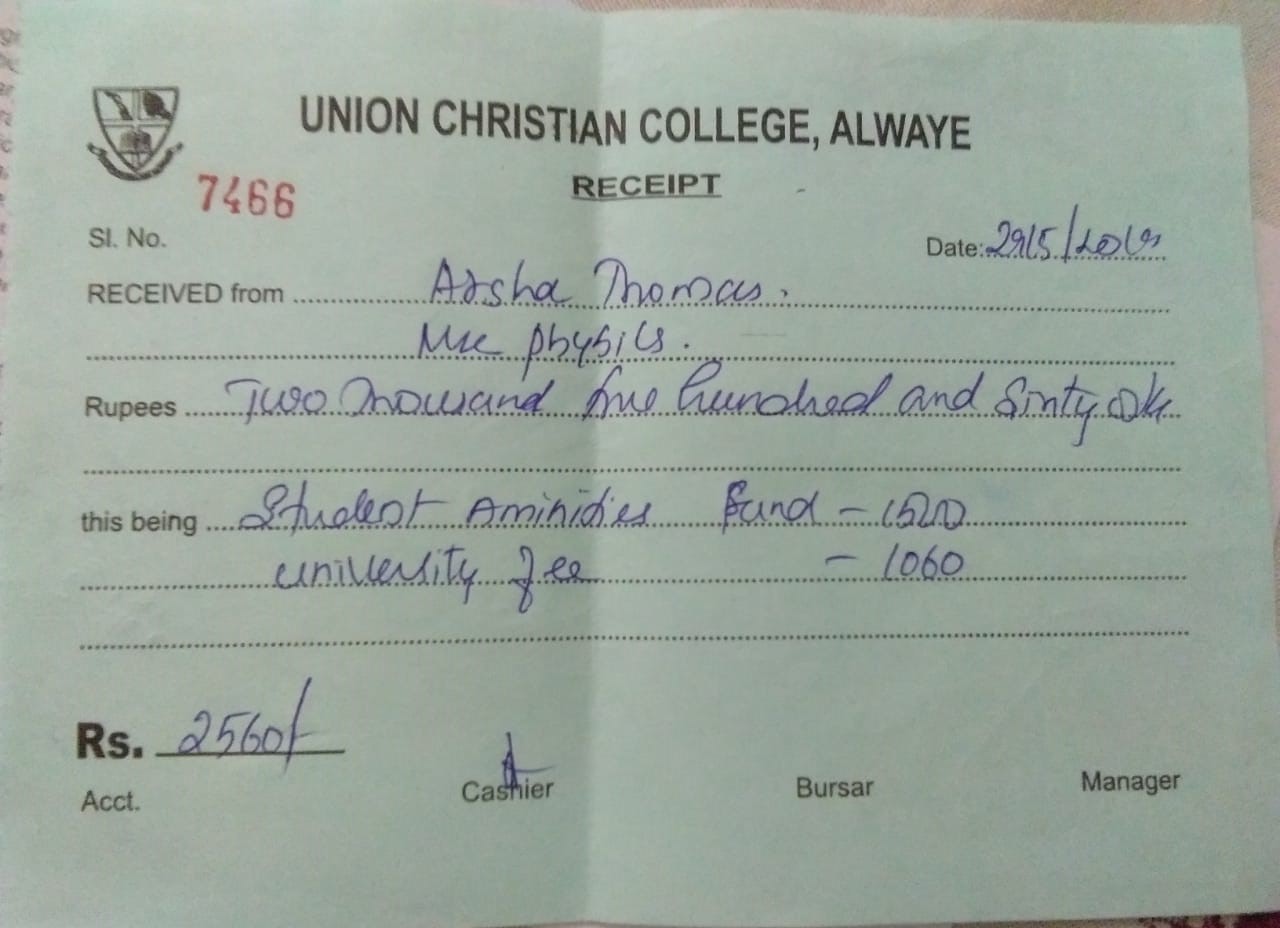 UNION CHRISTIAN COLLEGE, ALWAYE
RECEIPT
7466
Sl. No.
Date: 29/5/2019
RECEIVED from Arsha Thomas.
Msc physics.
Rupees Two Thousand five hundred and Sixty
this being Student Aminidies Fund - 1500
university fee - 1060
Rs. 2560/-
Acct. Cashier Bursar Manager